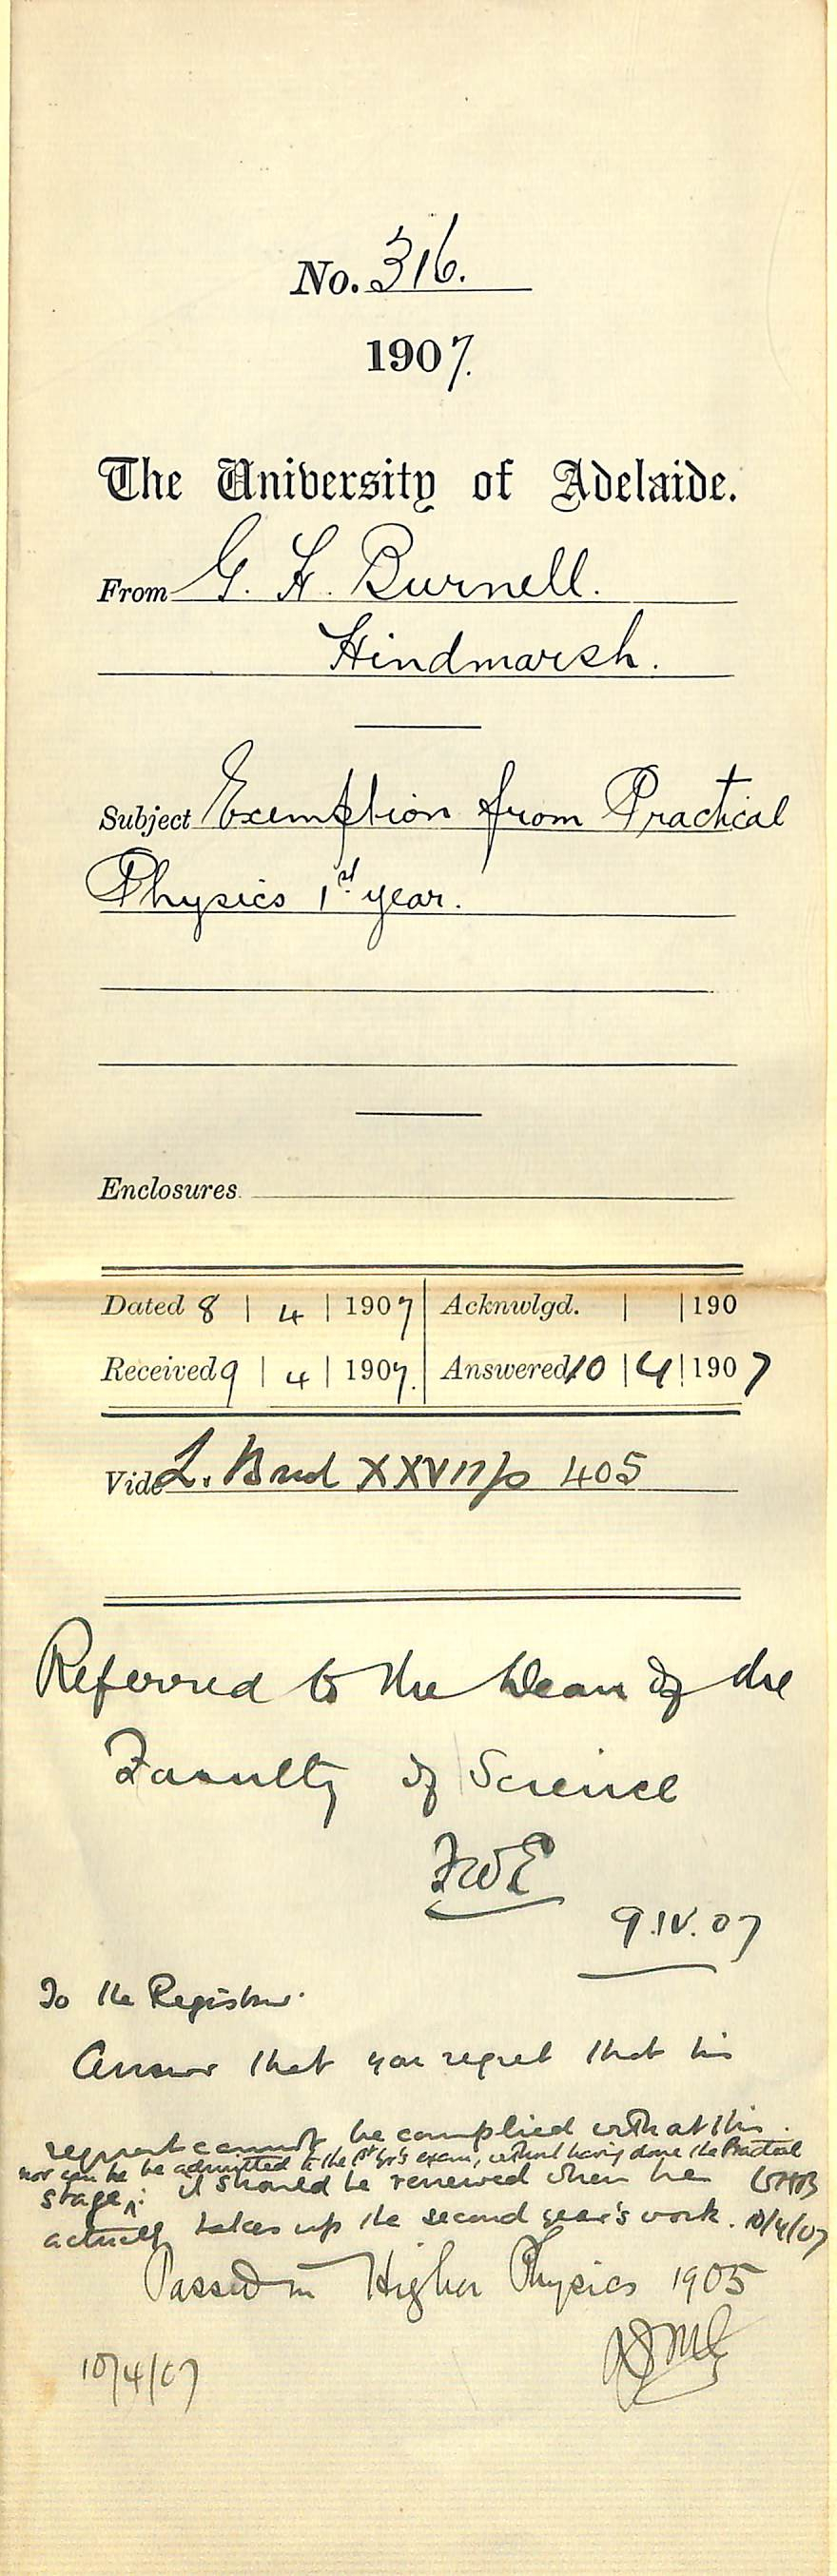 No. 316.
1907.
The University of Adelaide.
From G. H. Burnell.
Hindmarsh.
Subject Exemption from Practical
Physics 1st year.
Enclosures.
Dated 8 | 4 | 1907 Acknwlgd. | | 190
Received 9 | 4 | 1907. Answered 10 | 4 | 1907
Vide L. Book XXVII p 405
Referred to the Dean of the
Faculty of Science
9.IV.07
To the Registrar.
Answer that you regret that his
request cannot be complied with at this
nor can he be admitted to the 1st yr's exam, without having done the Practical
stage: it should be renewed when he WHB
actually takes up the second year's work. 10/4/07
Passed in Higher Physics 1905
10/4/07